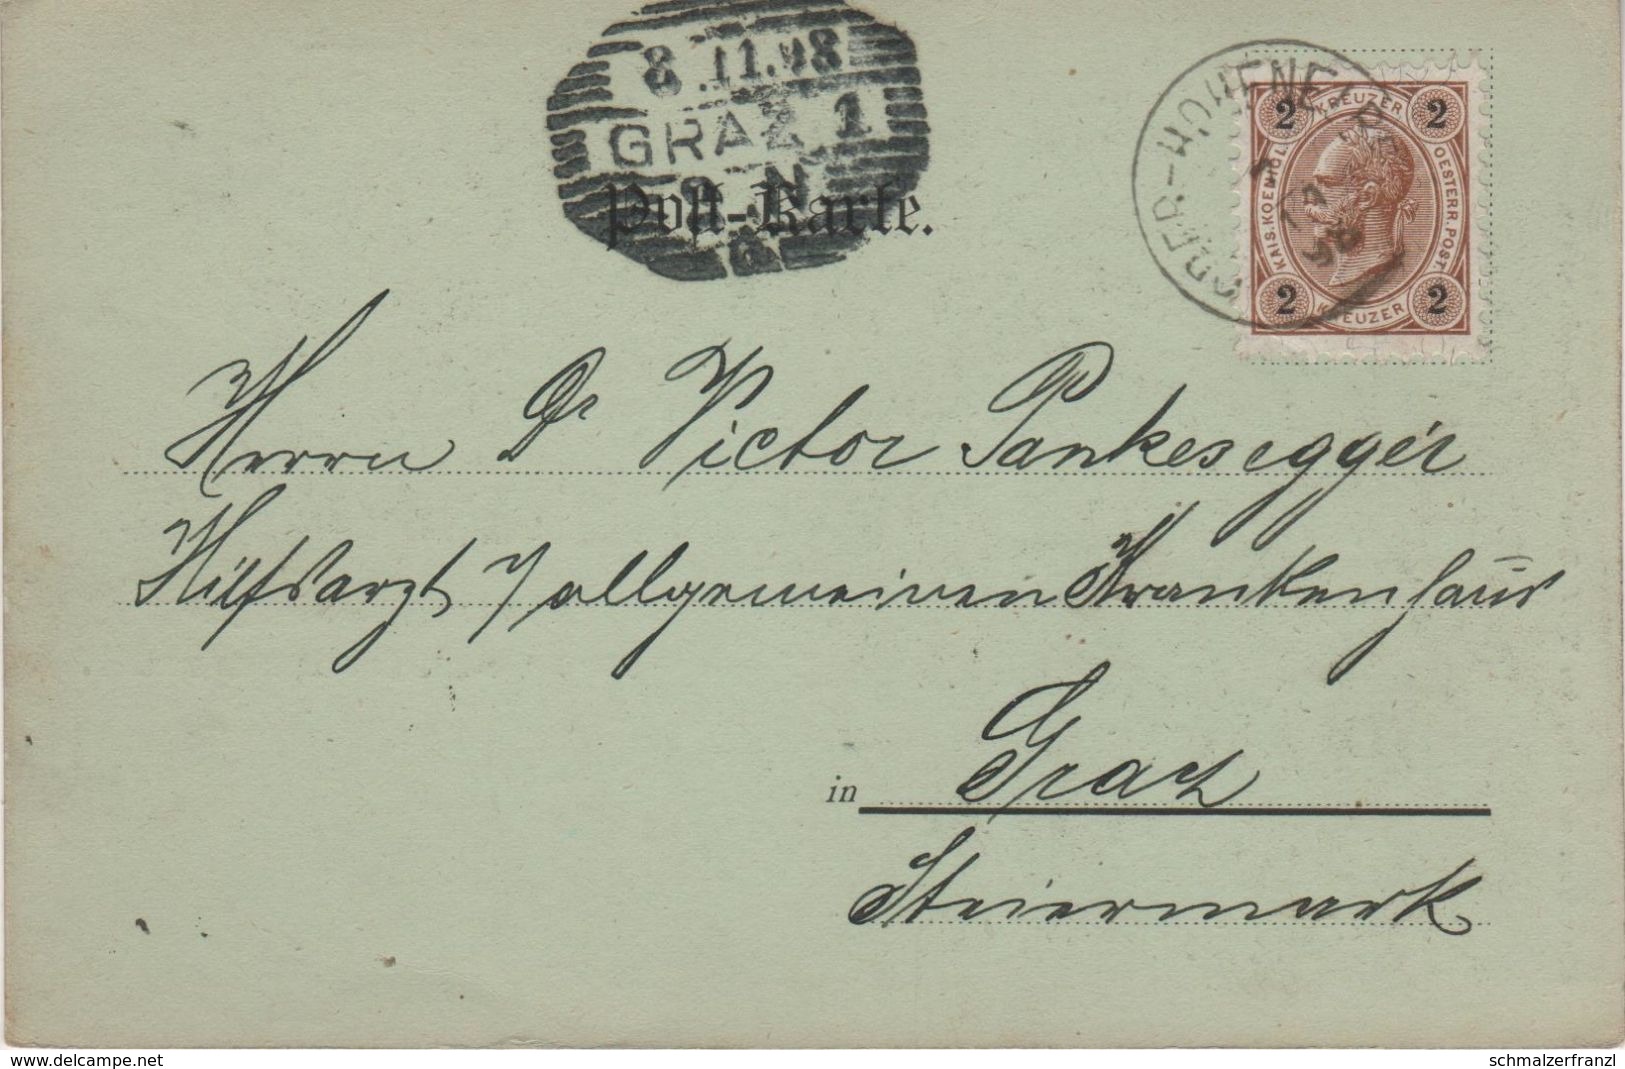 8 11.98
GRAZ 1
8-N
6
Post-Karte.
OBER-HOHENELBE
7
11
98
2 KREUZER 2
KAIS. KOENIGL. OESTERR. POST
2 KREUZER 2
Herrn Dr Victor Pankesegger
Hilfsarzt / allgemeinen Krankenhaus
in Graz
Steiermark
www.delcampe.net
schmalzerfranzl